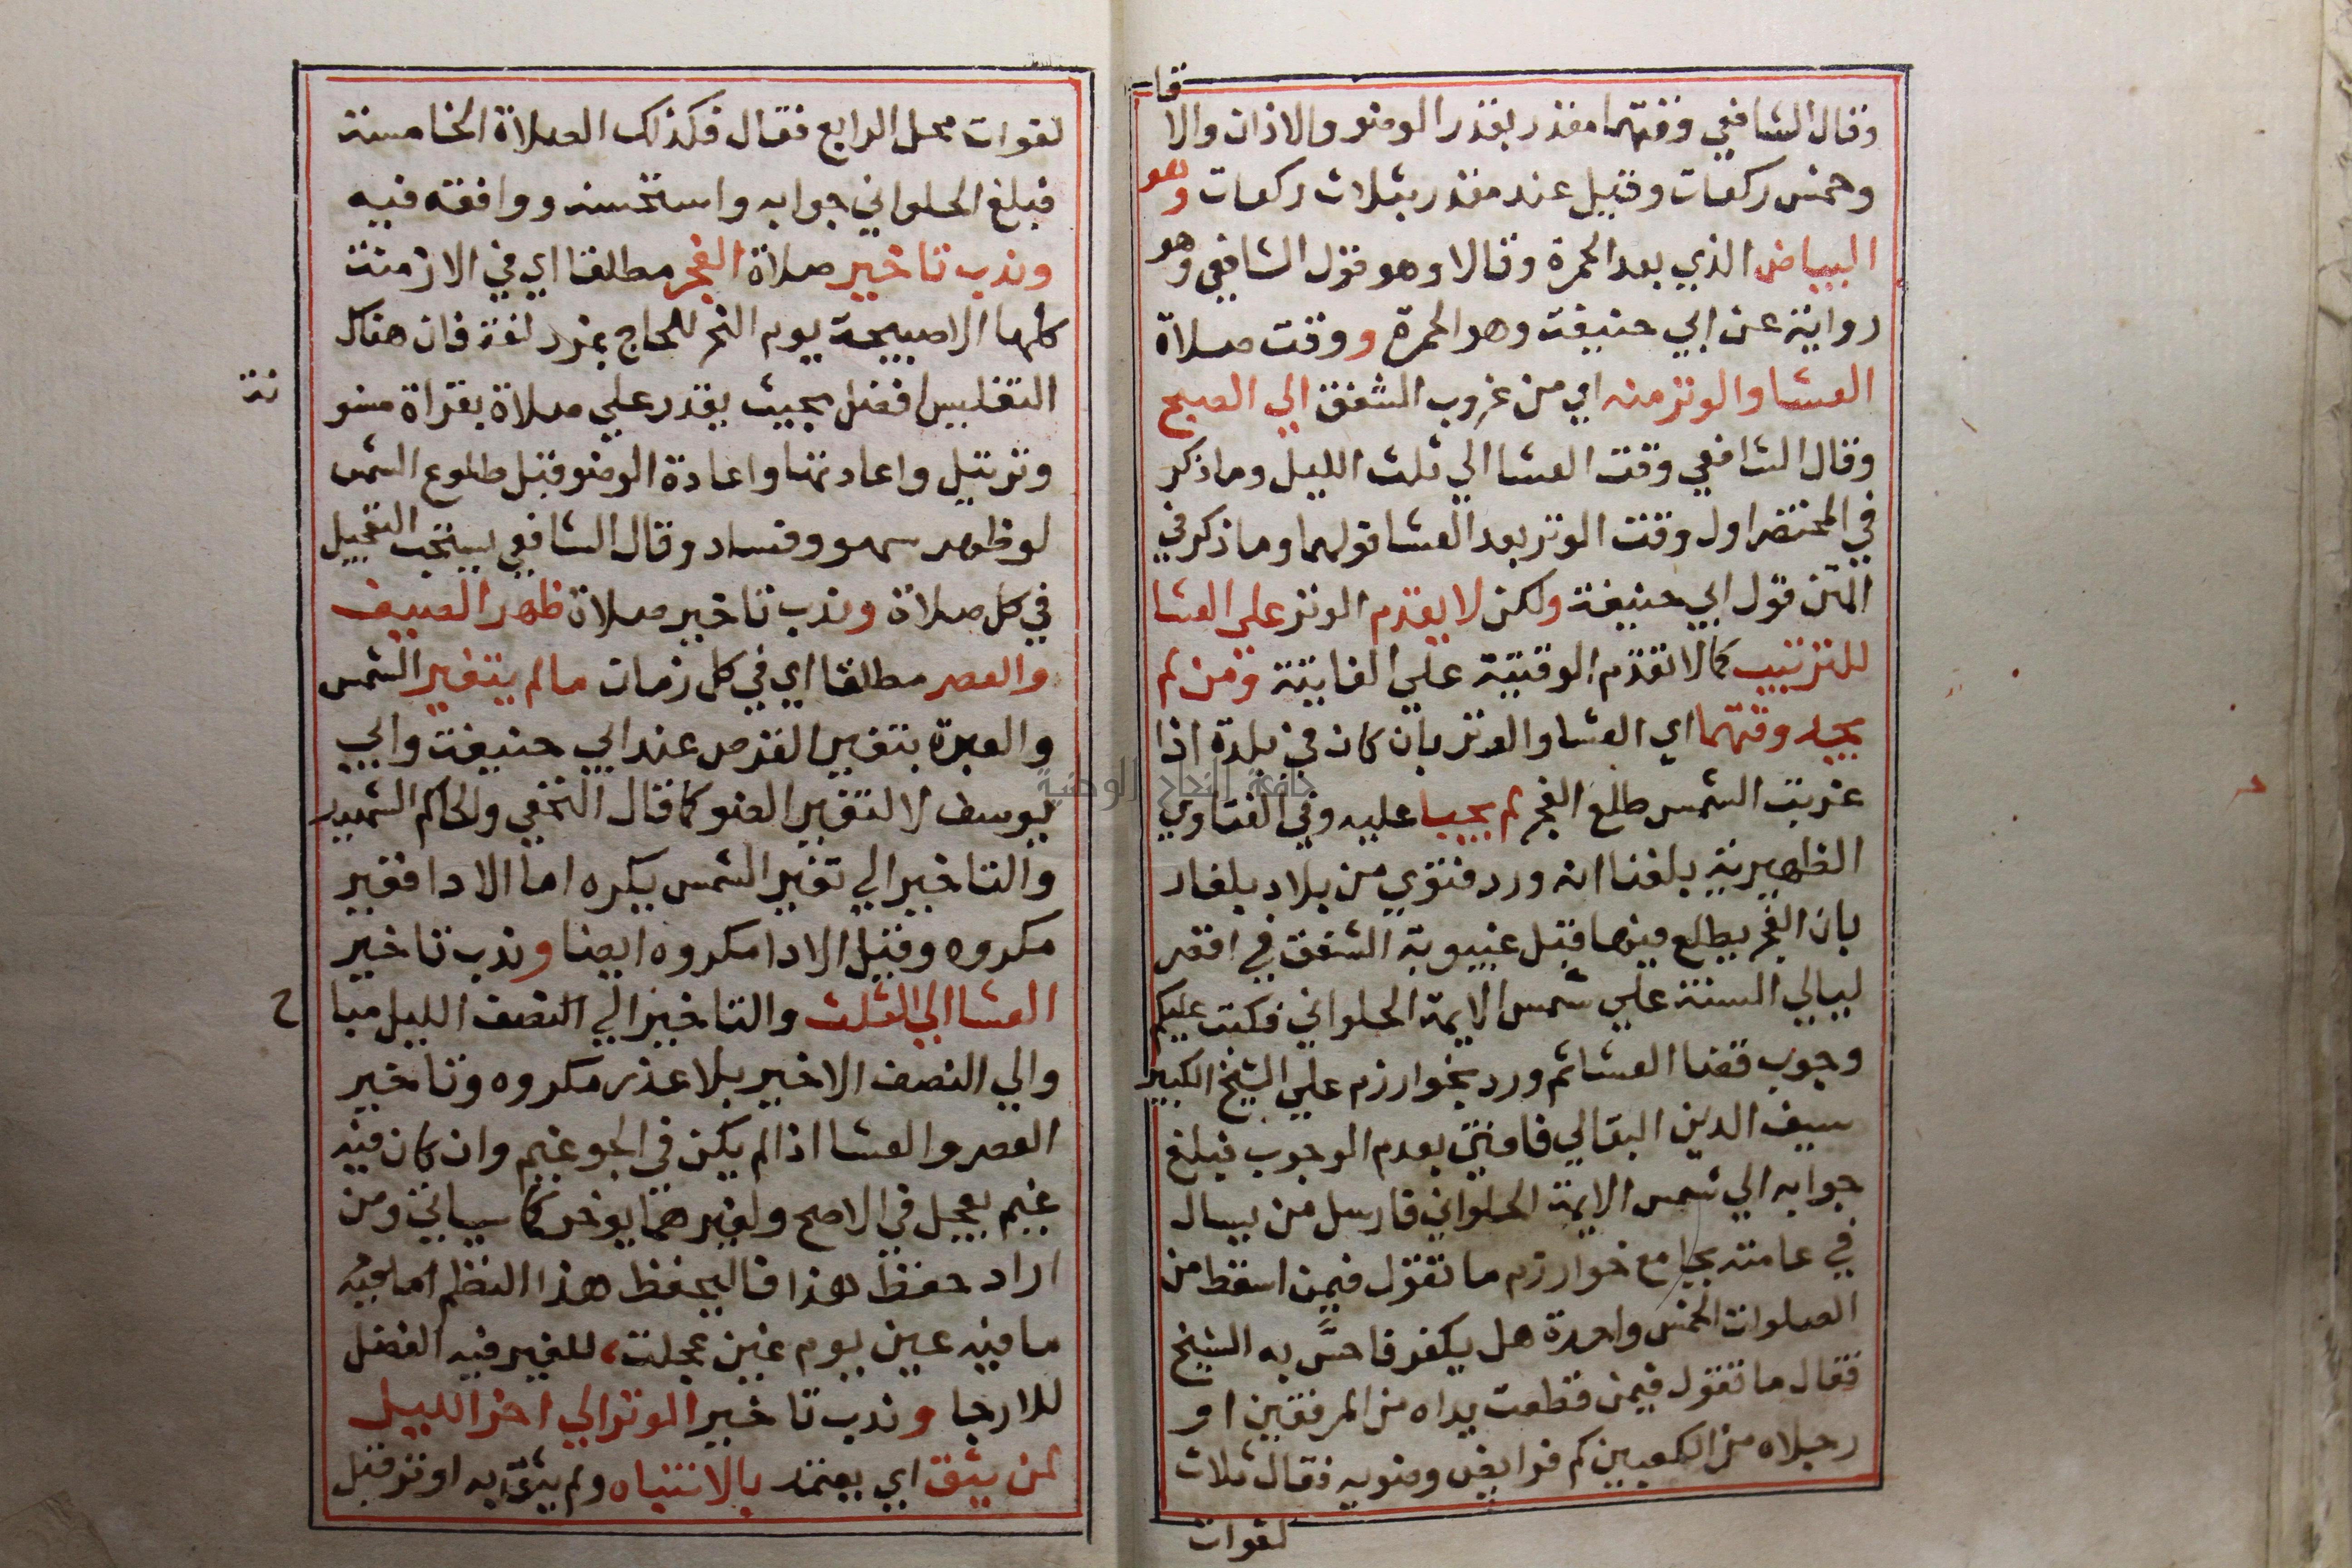 وقال الشافعي وقتهما مقدر بقدر الوضو والاذان والا قا
وخمس ركعات وقيل عند مقدر بثلاث ركعات وهو
البياض الذي بعد الحمرة وقالا وهو قول الشافعي وهو
رواية عن ابي حنيفة وهو الحمرة ووقت صلاة
العشا والوتر منه اي من غروب الشفق الي الصبح
وقال الشافعي وقت العشا الي ثلث الليل وما ذكر
في المختصر اول وقت الوتر بعد العشا قولهما وما ذكر في
المتن قول ابي حنيفة ولكن لا يقدم الوتر علي العشا
للترتيب كما لا تقدم الوقتية علي الفايتة ومن لم
يجد وقتهما اي العشا والوتر بان كان في بلدة اذا
غربت الشمس طلع الفجر لم يجبا عليه وفي الفتاوي
الظهيرية بلغنا انه ورد فتوي من بلاد بلغار
بان الفجر يطلع فيها قبل غيبوبة الشفق في اقصر
ليالي السنة علي شمس الايمة الحلواني فكتب عليكم
وجوب قضا العشا ثم ورد بخوارزم علي الشيخ الكبير
سيف الدين البقالي فافتي بعدم الوجوب فبلغ
جوابه الي شمس الايمة الحلواني فارسل من يسال
في عامته بجامع خوارزم ما تقول فيمن اسقط من
الصلوات الخمس واحدة هل يكفر فاحس به الشيخ
فقال ما تقول فيمن قطعت يداه من المرفقين او
رجلاه من الكعبين كم فرايض وضويه فقال ثلاث
لفوات
لفوات محل الرابع فقال فكذلك الصلاة الخامسة
فبلغ الحلواني جوابه واستحسنه ووافقه فيه
وندب تاخير صلاة الفجر مطلقا اي في الازمنة
كلها الا صبيحة يوم النحر للحاج بمزدلفة فان هناك
التغليس افضل بحيث يقدر علي صلاة بقراة مسنو نة
وترتيل واعادتها واعادة الوضو قبل طلوع الشمس
لو ظهر سهو وفساد وقال الشافعي يستحب التعجيل
في كل صلاة وندب تاخير صلاة ظهر الصيف
والعصر مطلقا اي في كل زمان ما لم يتغير الشمس
والعبرة بتغير القرص عند ابي حنيفة وابي
يوسف لا لتغير الضو كما قال النخعي والحاكم الشهيد
والتاخير الي تغير الشمس يكره اما الادا فغير
مكروه وقيل الادا مكروه ايضا وندب تاخير
العشا الي الثلث والتاخير الي النصف الليل مبا ح
والي النصف الاخير بلا عذر مكروه وتاخير
العصر والعشا اذا لم يكن في الجو غيم وان كان فيه
غيم يعجل في الاصح ولغيرهما يوخر كما سياتي ومن
اراد حفظ هذا فاليحفظ هذا النظم اما فيه
ما فيه عين يوم غين عجلت، للغير فيه الفضل
للارجا وندب تاخير الوتر الي اخر الليل
لمن يثق اي يعتمد بالانتباه ولم يثق به اوتر قبل